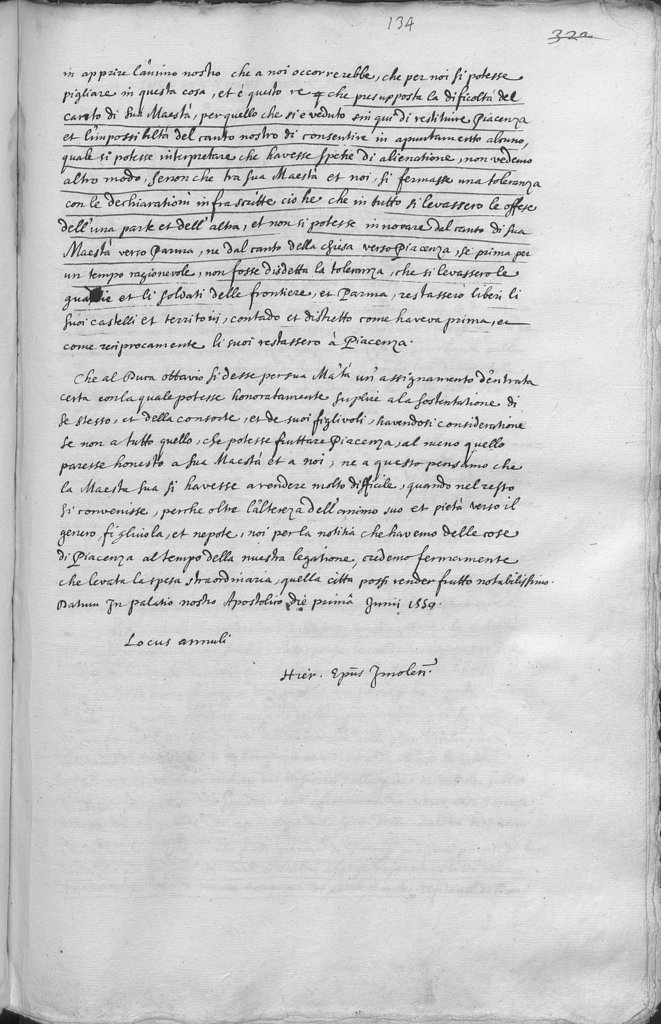 134
322
in apprire l'animo nostro che a noi occorrerebbe, che per noi si potesse
pigliare in questa cosa, et é questo che presupposta la dificoltà del
canto di Sua Maestà, per quello che si e veduto sin qui di restituire Piacenza
et l'impossibiltà del canto nostro di consentire in apuntamento alcuno,
quale si potesse interpretare che havesse spetie di alienatione, non vedemo
altro modo, senon che tra sua Maestà et noi, si fermasse una toleranza
con le dechiarationi infrascritte cio he che in tutto si levassero le offese
dell'una parte et dell'altra, et non si potesse innovare dal canto di sua
Maestà verso Parma, ne dal canto della chiesa verso Piacenza, se prima per
un tempo ragionevole, non fosse disdetta la toleranza, che si levassero le
guardie et li soldati delle frontiere, et Parma, restassero liberi li
suoi castelli et territorii, contado et distretto come haveva prima, et
come reciprocamente li suoi restassero à Piacenza.
Che al Duca ottavio si desse per sua Ma.tà un'assignamento d'entrata
certa con la quale potesse honoratamente suplire a la sostentatione di
se stesso, et della consorte, et de suoi figlivoli, havendosi consideratione
se non a tutto quello, che potesse fruttare Piacenza, al meno quello
paresse honesto a sua Maestà et a noi; ne a questo pensamo che
la Maesta sua si havesse a rendere molto difficile, quando nel resto
si convenisse, perche oltre l'altezza dell'animo suo et pietà verso il
genero figliuola, et nepote, noi per la notitia che havemo delle cose
di Piacenza al tempo della nuestra legatione, credemo fermamente
che levata la spesa straordinaria, quella citta possi render frutto notabilissimo.
Datum In palatio nostro Apostolico die prima Junii 1550.
Locus annuli
Hier. Ep̃us Jmolen̄.